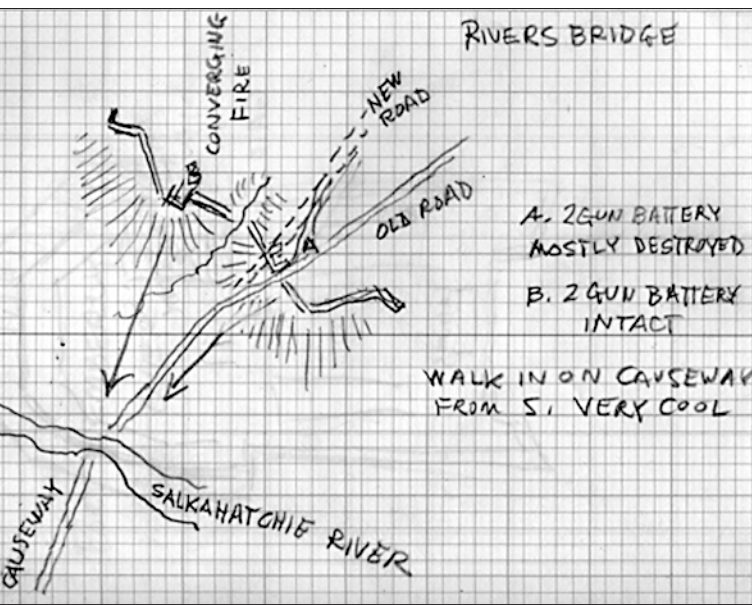 RIVERS BRIDGE
CONVERGING
FIRE
NEW
ROAD
B
A
OLD ROAD
A. 2 GUN BATTERY
MOSTLY DESTROYED
B. 2 GUN BATTERY
INTACT
WALK IN ON CAUSEWAY
FROM S. VERY COOL
SALKAHATCHIE RIVER
CAUSEWAY